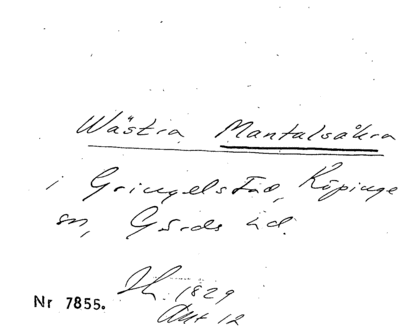 Wästra Mantalsåkra
i Gringelstad, Köpinge
sn, Gärds hd.
Sk. 1829
Akt 12
Nr 7855.